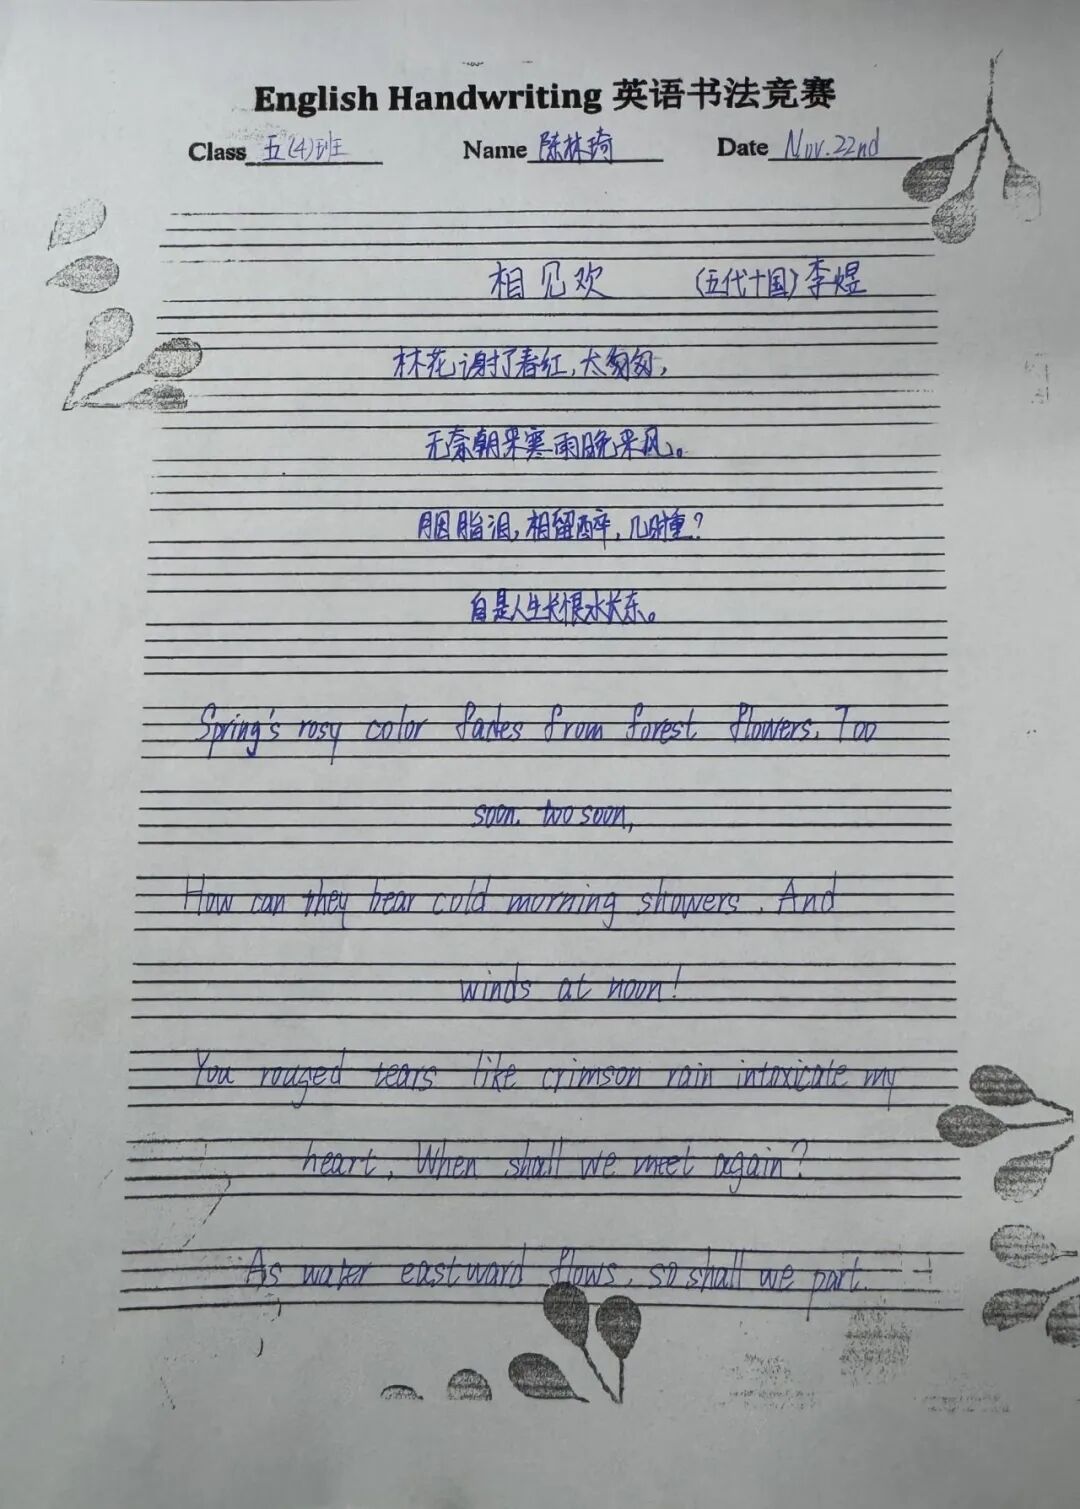 English Handwriting 英语书法竞赛
Class 五(4)班 Name 陈林琦 Date Nov. 22nd
相见欢 (五代十国) 李煜
林花谢了春红,太匆匆,
无奈朝来寒雨晚来风。
胭脂泪,相留醉,几时重?
自是人生长恨水长东。
Spring's rosy color fades from forest flowers. Too
soon. too soon,
How can they bear cold morning showers. And
winds at noon!
You rouged tears like crimson rain intoxicate my
heart. When shall we meet again?
As water eastward flows, so shall we part.